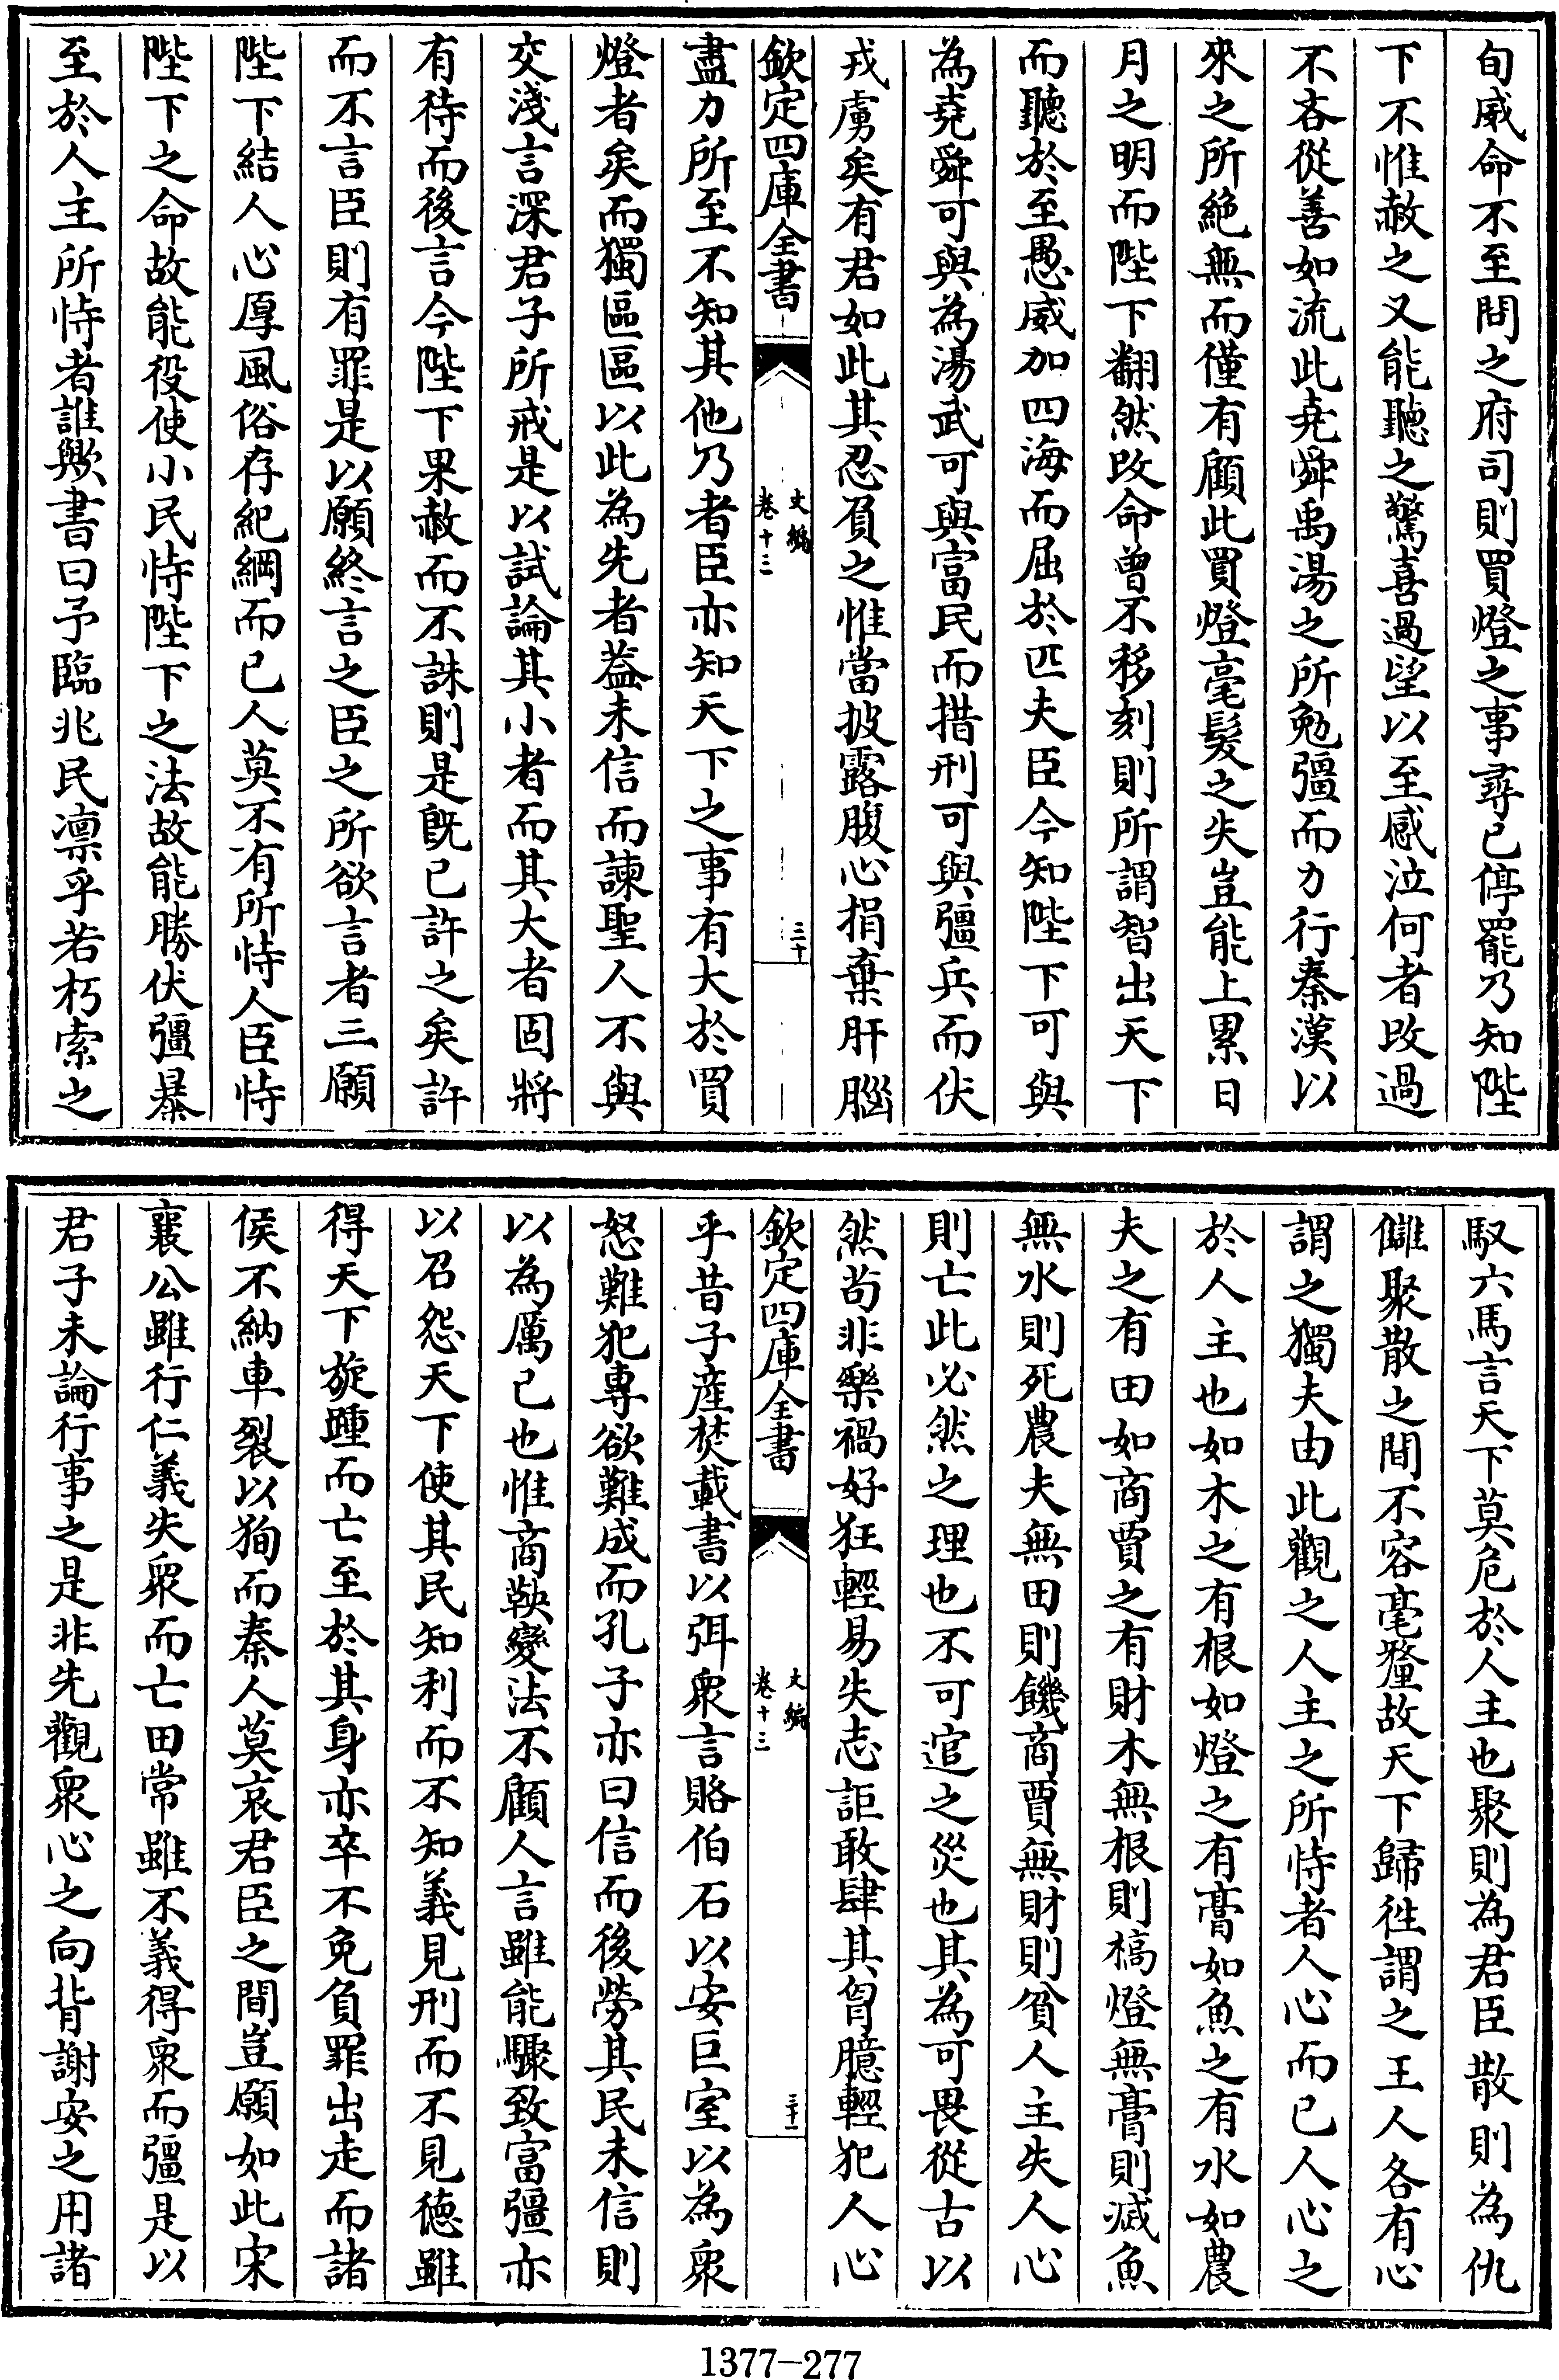 旬威命不至問之府司則買燈之事尋已停罷乃知陛
下不惟赦之又能聽之驚喜過望以至感泣何者改過
不吝從善如流此堯舜禹湯之所勉彊而力行秦漢以
來之所絶無而僅有顧此買燈毫髮之失豈能上累日
月之明而陛下翻然改命曾不移刻則所謂智出天下
而聽於至愚威加四海而屈於匹夫臣今知陛下可與
為堯舜可與為湯武可與富民而措刑可與彊兵而伏
戎虜矣有君如此其忍負之惟當披露腹心捐棄肝腦
欽定四庫全書
文編
卷十三
三十
盡力所至不知其他乃者臣亦知天下之事有大於買
燈者矣而獨區區以此為先者葢未信而諫聖人不與
交淺言深君子所戒是以試論其小者而其大者固將
有待而後言今陛下果赦而不誅則是旣已許之矣許
而不言臣則有罪是以願終言之臣之所欲言者三願
陛下結人心厚風俗存紀綱而已人莫不有所恃人臣恃
陛下之命故能役使小民恃陛下之法故能勝伏彊暴
至於人主所恃者誰歟書曰予臨兆民凛乎若朽索之
馭六馬言天下莫危於人主也聚則為君臣散則為仇
讎聚散之間不容毫釐故天下歸徃謂之王人各有心
謂之獨夫由此觀之人主之所恃者人心而已人心之
於人主也如木之有根如燈之有膏如魚之有水如農
夫之有田如商賈之有財木無根則槁燈無膏則滅魚
無水則死農夫無田則饑商賈無財則貧人主失人心
則亡此必然之理也不可逭之災也其為可畏從古以
然茍非樂禍好狂輕易失志詎敢肆其胷臆輕犯人心
欽定四庫全書
文編
卷十三
三十一
乎昔子産焚載書以弭衆言賂伯石以安巨室以為衆
怒難犯專欲難成而孔子亦曰信而後勞其民未信則
以為厲已也惟商鞅變法不顧人言雖能驟致富彊亦
以召怨天下使其民知利而不知義見刑而不見德雖
得天下旋踵而亡至於其身亦卒不免負罪出走而諸
侯不納車裂以狥而秦人莫哀君臣之間豈願如此宋
襄公雖行仁義失衆而亡田常雖不義得衆而彊是以
君子未論行事之是非先觀衆心之向背謝安之用諸
1377-277